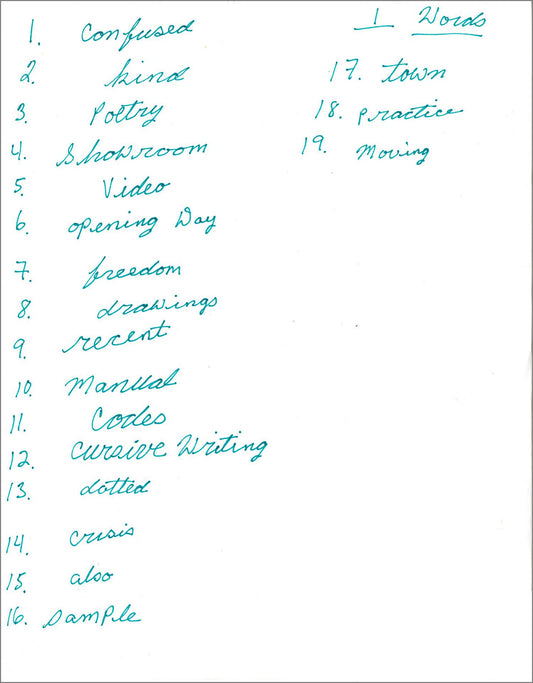 1 Words
1. Confused
2. kind
3. Poetry
4. Showroom
5. Video
6. opening Day
7. freedom
8. drawings
9. recent
10. Manual
11. Codes
12. Cursive Writing
13. dotted
14. crisis
15. also
16. sample
17. town
18. practice
19. Moving